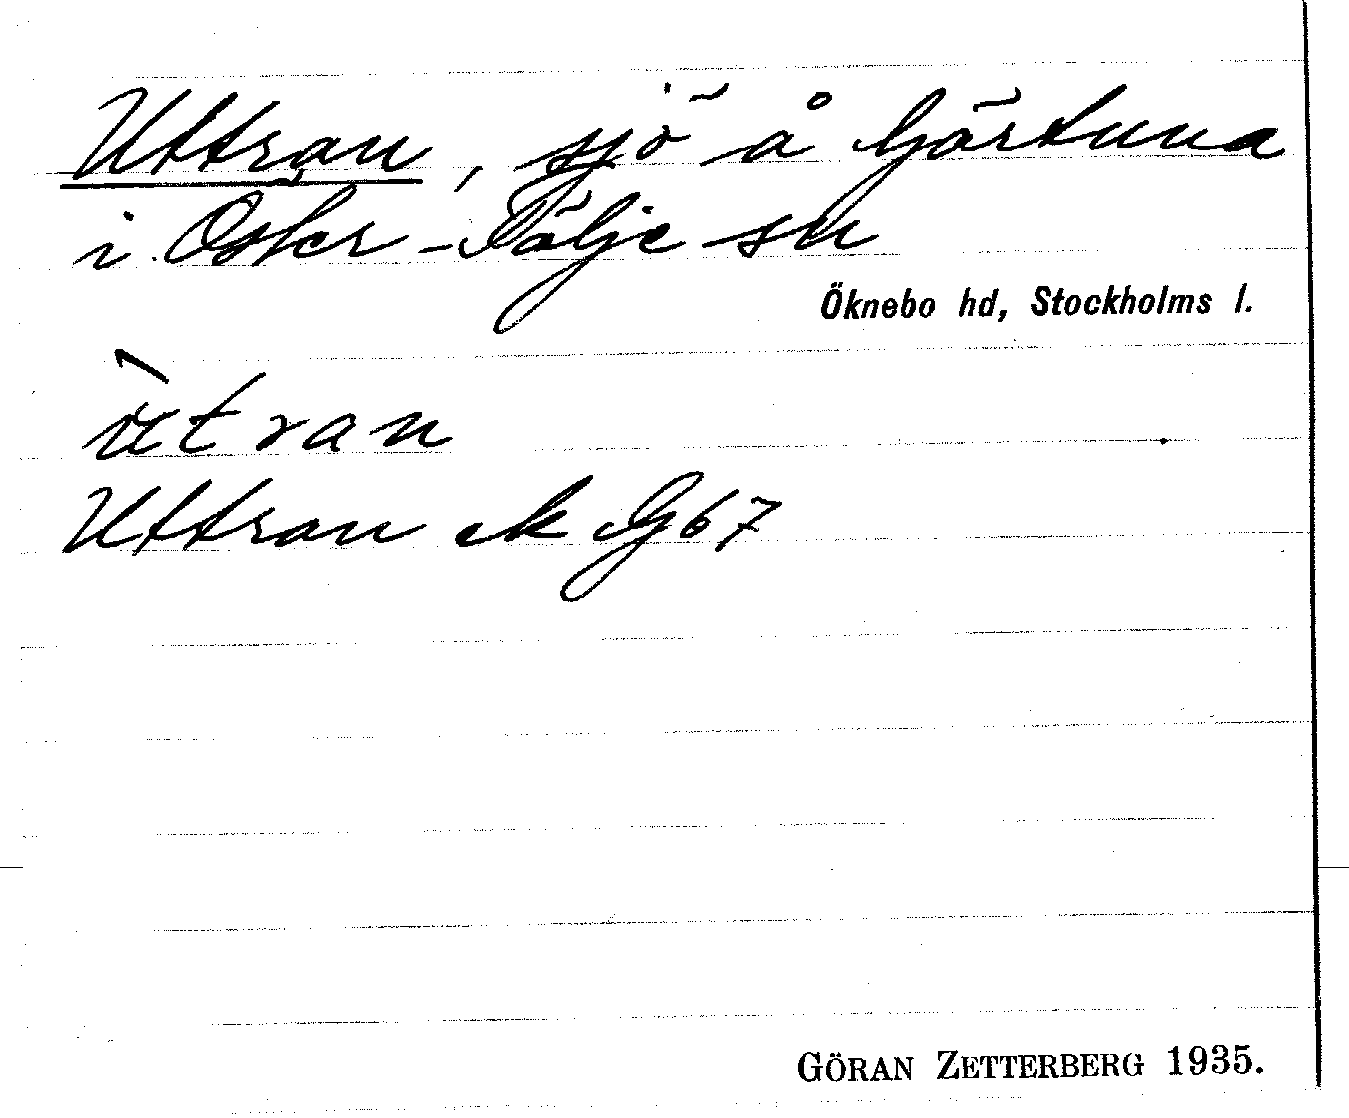 Uttran, sjö å Gärtuna
i Öster-Tälje sn
Öknebo hd, Stockholms l.
ùtran
Uttran ek G 67
GÖRAN ZETTERBERG 1935.